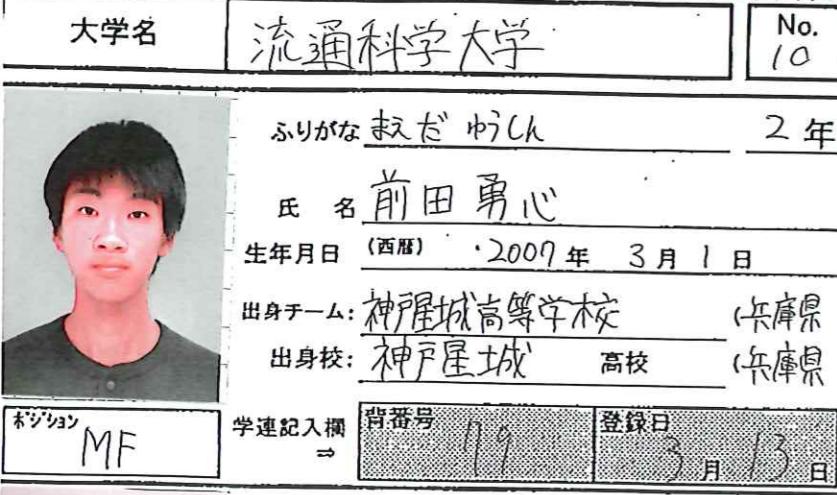 大学名 流通科学大学 No. 10
ふりがな まえだ ゆうしん 2年
氏名 前田勇心
生年月日 (西暦) 2007年 3月 1日
出身チーム: 神戸星城高等学校 (兵庫県
出身校: 神戸星城 高校 (兵庫県
ポジション MF 学連記入欄 ⇒ 背番号 79 登録日 3月 13日